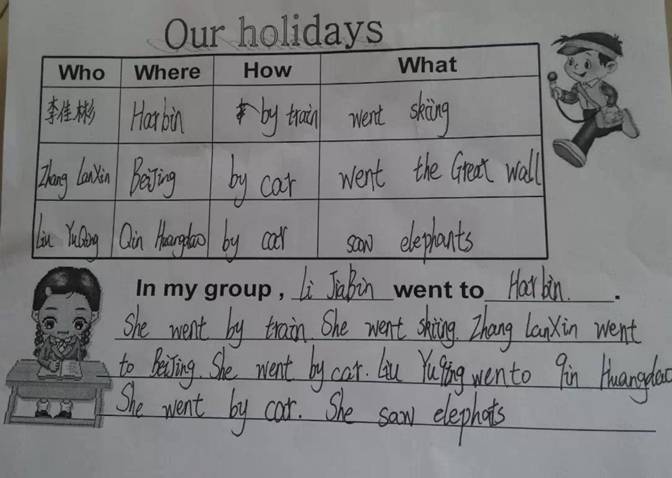 Our holidays
Who Where How What
李佳彬 Harbin by train went skiing
Zhang LanXin BeiJing by car went the Great wall
Liu YuQing Qin Huangdao by car saw elephants
In my group, Li JiaBin went to Harbin.
She went by train. She went skiing. Zhang LanXin went
to BeiJing. She went by car. Liu YuQing wento qin Huangdao
She went by car. She saw elephats